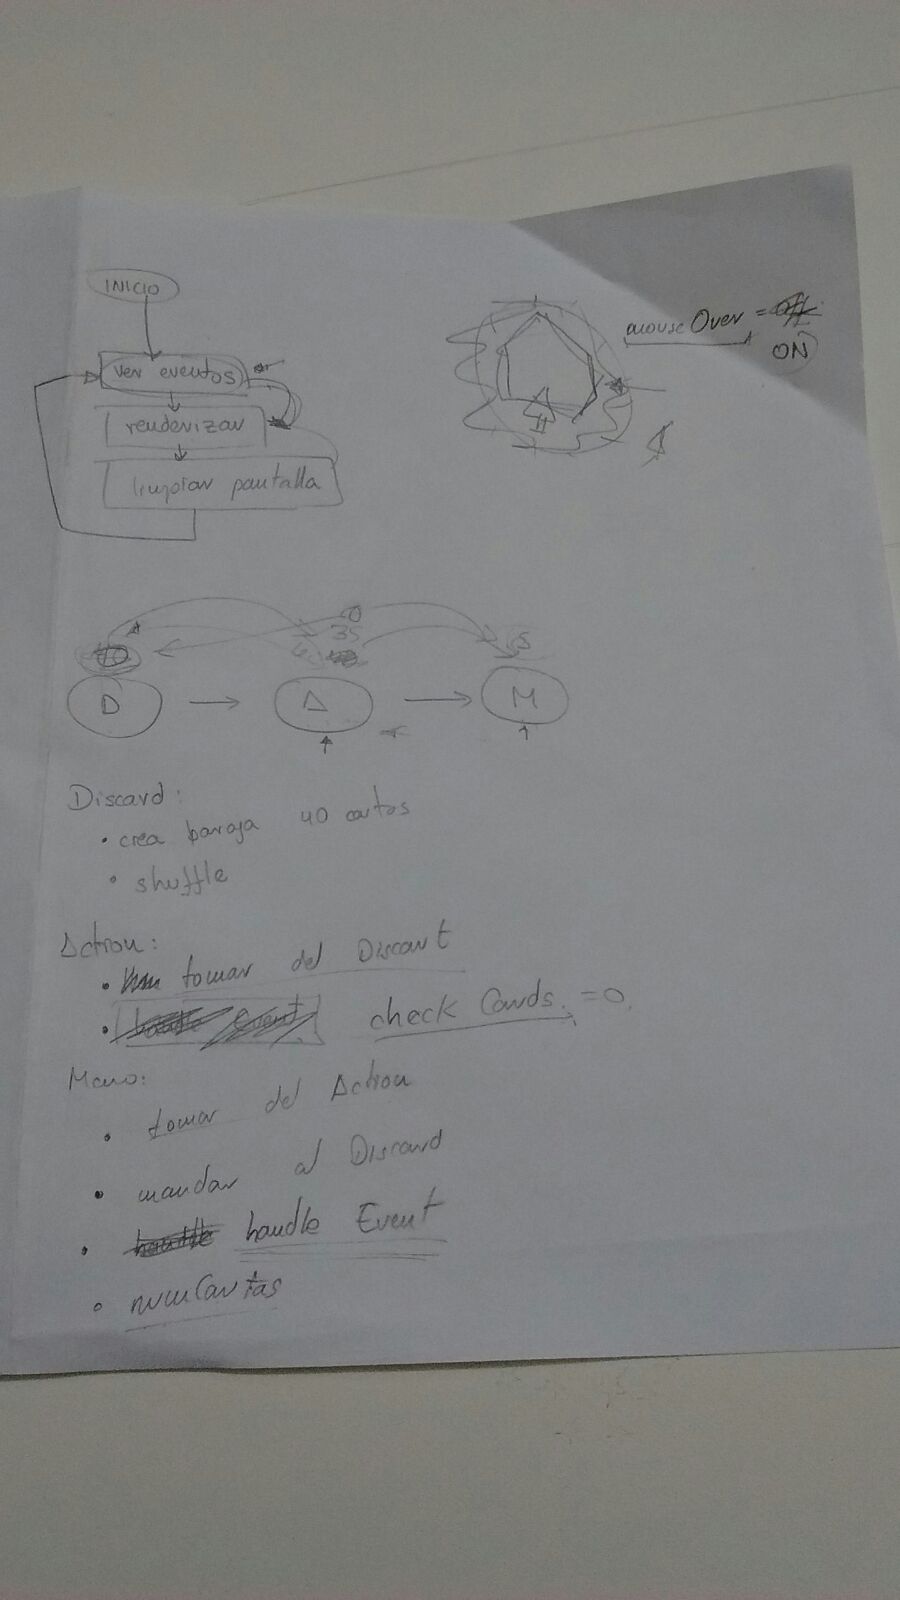 INICIO
mouse Over = off
ON
ver eventos
renderizar
limpiar pantalla
0
35
40
5
D
A
M
Discard:
• crea baraja 40 cartas
• shuffle
Action:
• tomar del Discart
• handle Event check Cards = 0.
Mano:
• tomar del Action
• mandar al Discard
• handle handle Event
• numCartas